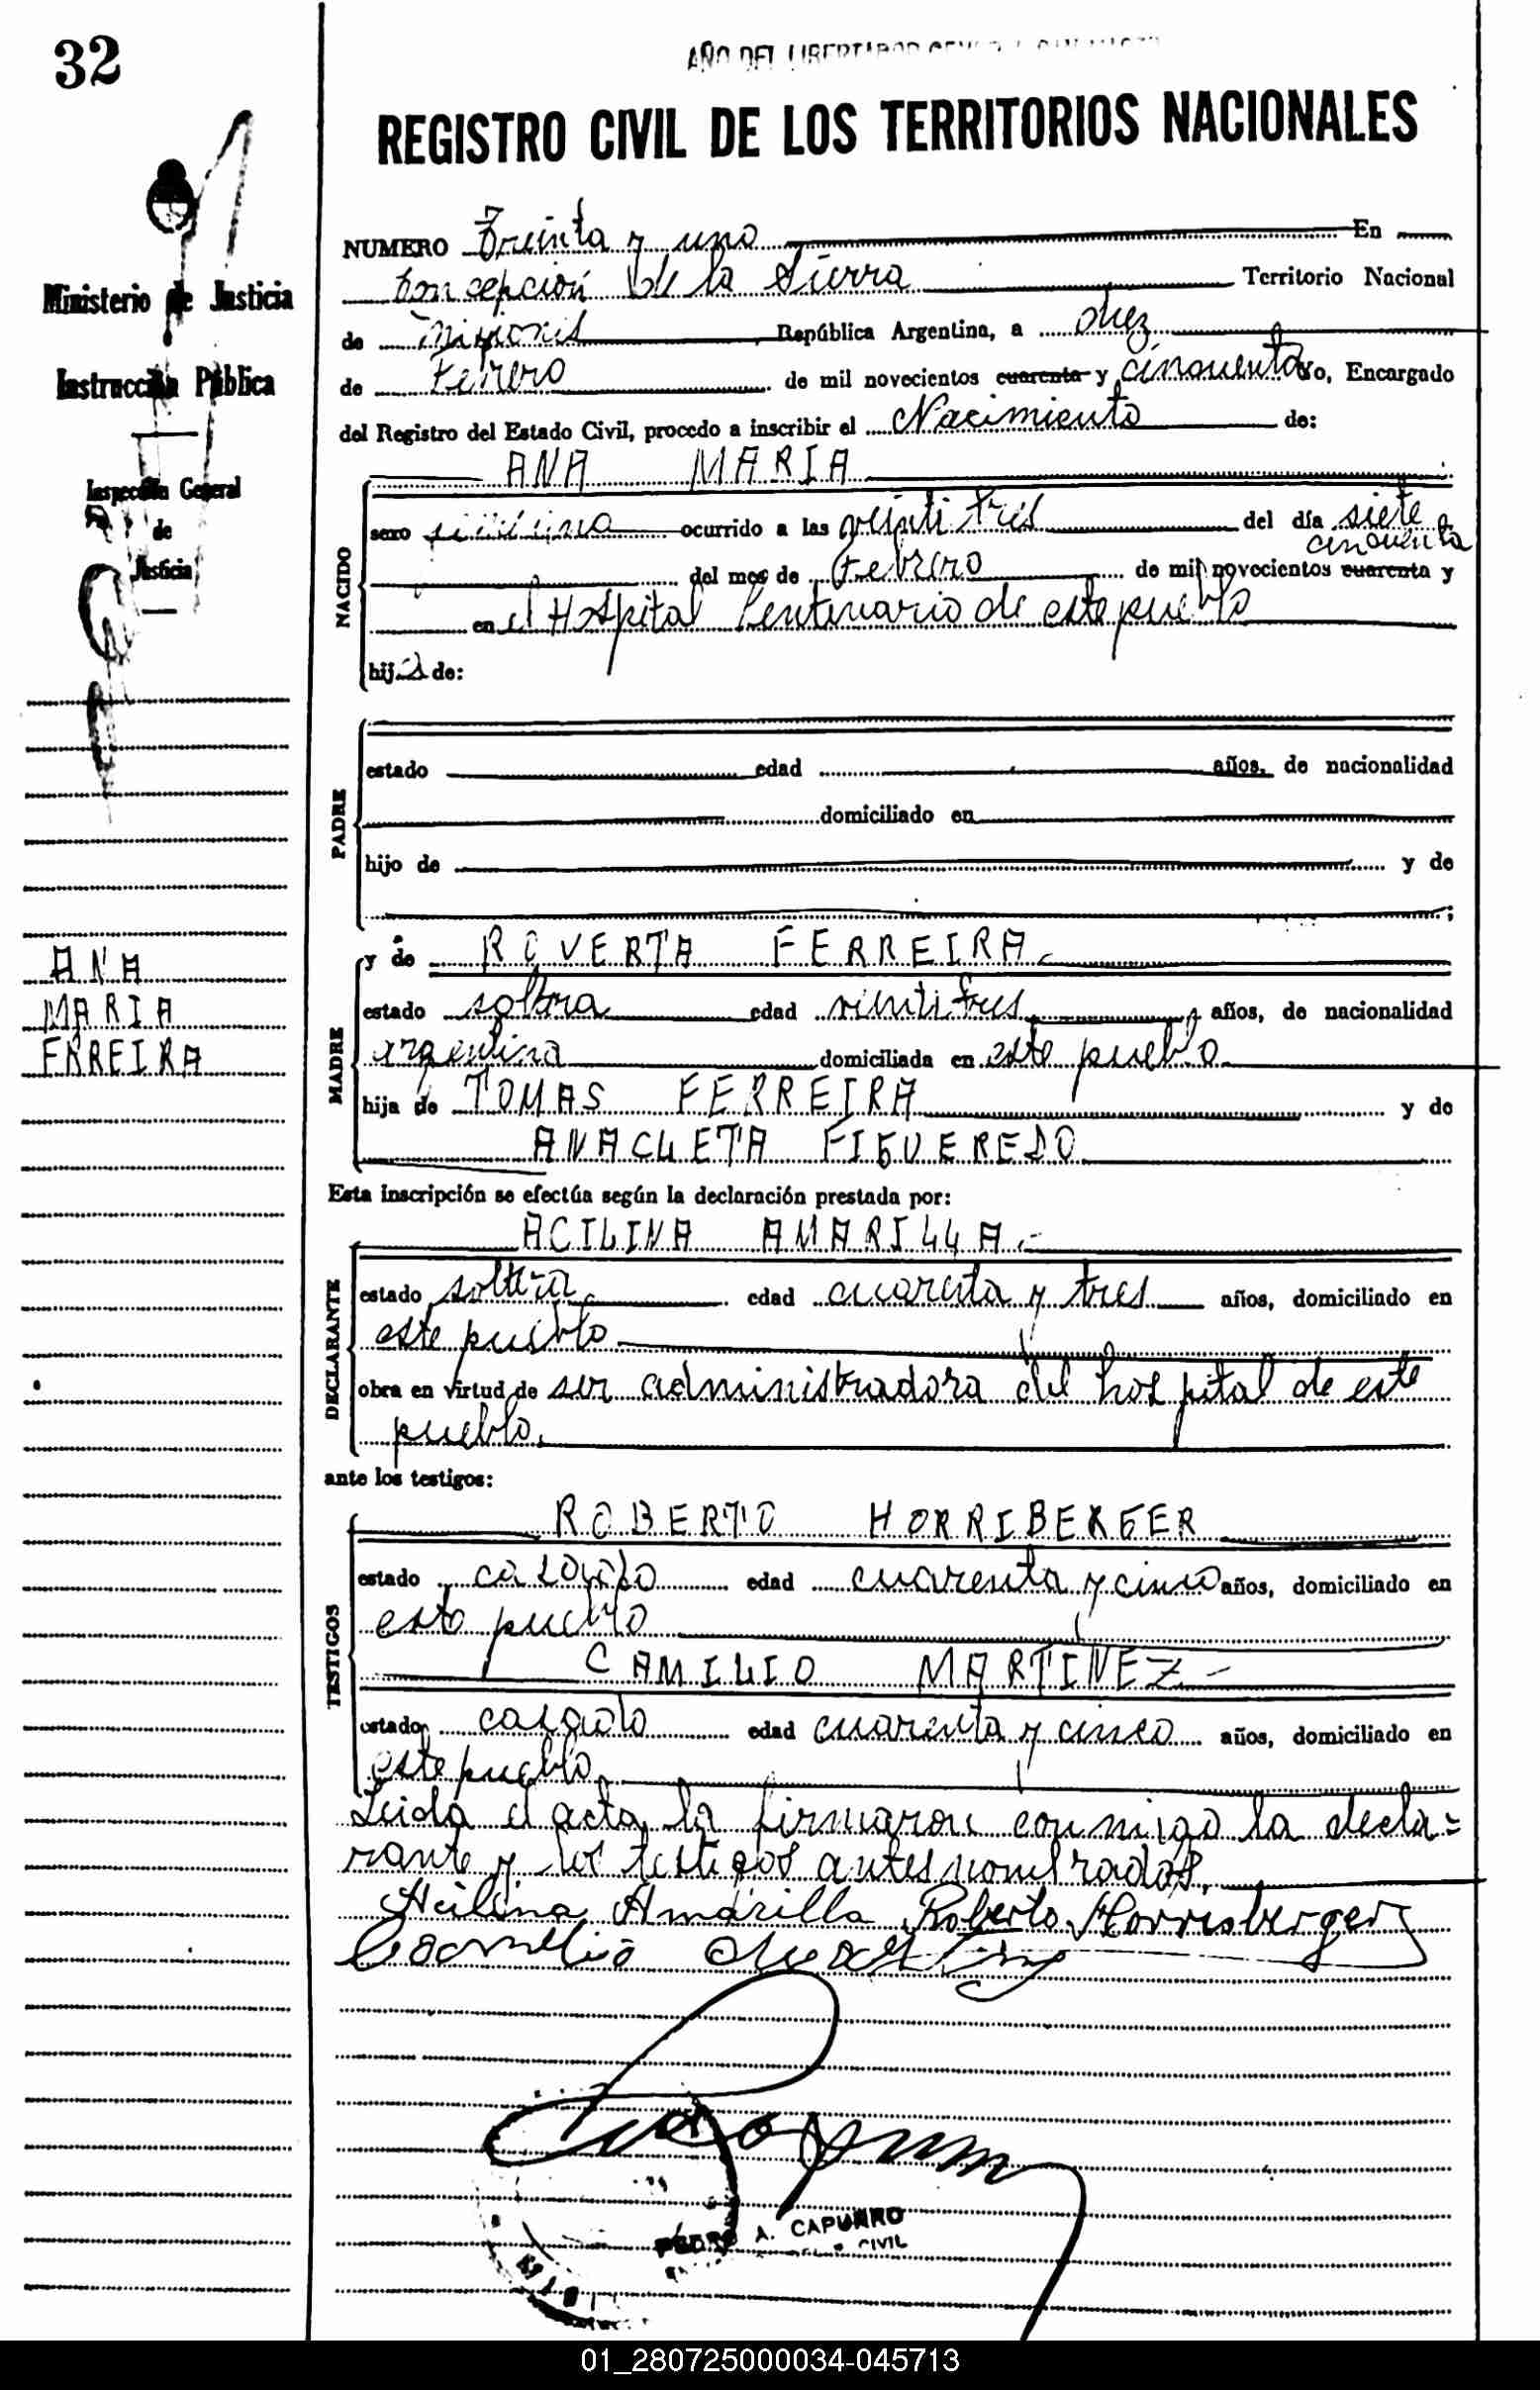 32
AÑO DEL LIBERTADOR
REGISTRO CIVIL DE LOS TERRITORIOS NACIONALES
Ministerio de Justicia
Instrucción Pública
Inspección General
de
Justicia
NUMERO Treinta y uno En
Concepción de la Sierra Territorio Nacional
de Misiones República Argentina, a diez
de Febrero de mil novecientos cuarenta y cincuenta Yo, Encargado
del Registro del Estado Civil, procedo a inscribir el Nacimiento de:
ANA MARIA
NACIDO
sexo femenino ocurrido a las veinti tres del día siete
cincuenta
del mes de Febrero de mil novecientos cuarenta y
en el Hospital Centenario de este pueblo
hija de:
PADRE
estado edad años, de nacionalidad
domiciliado en
hijo de y de
ANA
MARIA
FERREIRA
MADRE
y de ROVERTA FERREIRA
estado soltera edad veinti tres años, de nacionalidad
argentina domiciliada en este pueblo
hija de TOMAS FERREIRA y de
ANACLETA FIGUEREDO
Esta inscripción se efectúa según la declaración prestada por:
DECLARANTE
ACILINA AMARILLA.-
estado soltera edad cuarenta y tres años, domiciliado en
este pueblo
obra en virtud de ser administradora del hospital de este
pueblo.
ante los testigos:
TESTIGOS
ROBERTO HORRIBERGER
estado casado edad cuarenta y cinco años, domiciliado en
este pueblo
CAMILIO MARTINEZ-
estado casado edad cuarenta y cinco años, domiciliado en
este pueblo
Leida el acta, la firmaron conmigo la decla=
rante y los testigos antes nombrados.
Acilina Amarilla Roberto Horrisberger
PEDRO A. CAPURRO
CIVIL
01_280725000034-045713